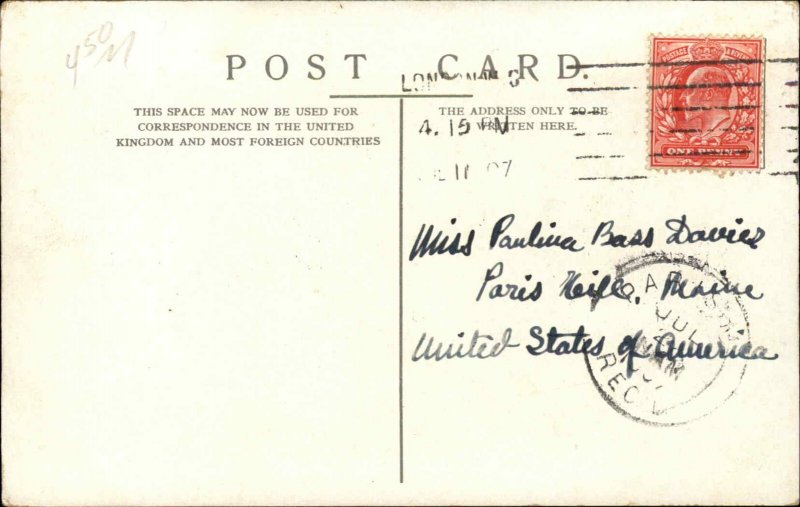 4 50
POST CARD.
THIS SPACE MAY NOW BE USED FOR
CORRESPONDENCE IN THE UNITED
KINGDOM AND MOST FOREIGN COUNTRIES
THE ADDRESS ONLY TO BE
WRITTEN HERE.
LONDON
4.15 PM
11 07
POSTAGE & REVENUE
ONE PENNY
Miss Paulina Bass Davies
Paris Hill, Maine
United States of America
PARIS
JUL
AM
REC'D